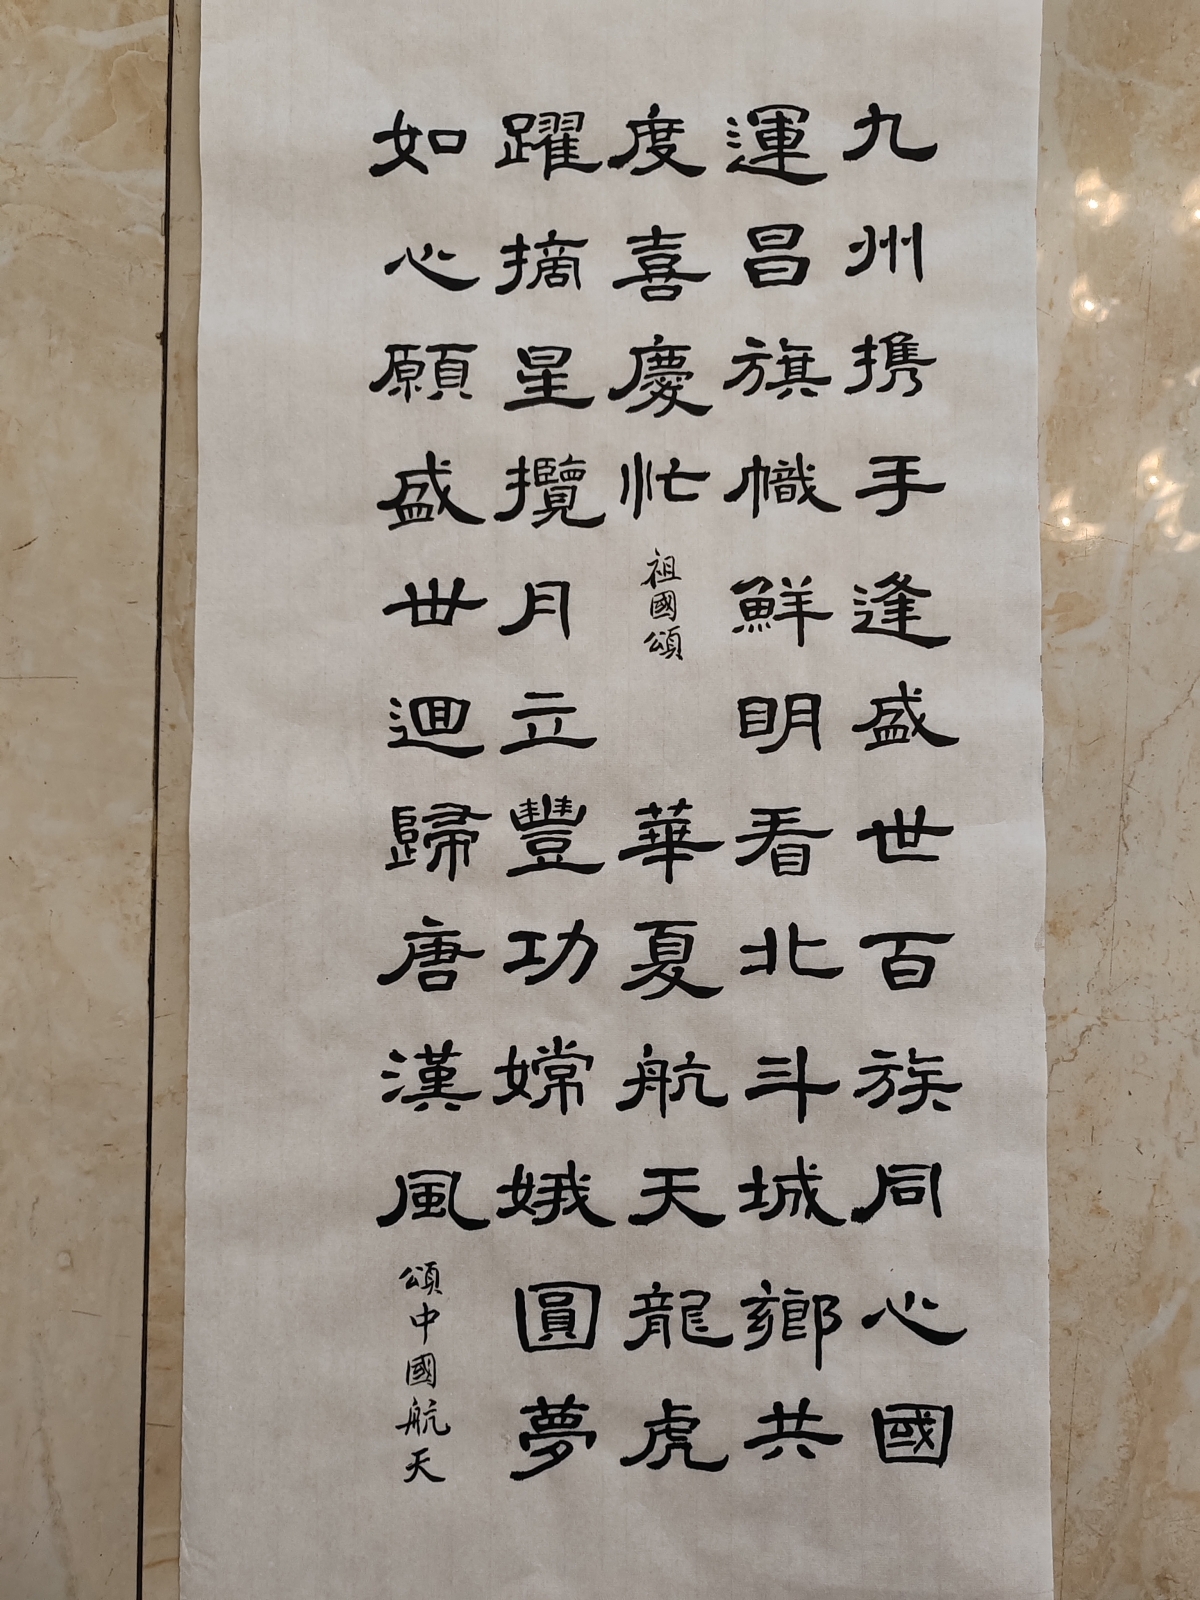 九州携手逢盛世百族同心國
運昌旗幟鮮明看北斗城鄉共
度喜慶忙
祖國頌
華夏航天龍虎
躍摘星攬月立豐功嫦娥圓夢
如心願盛世迴歸唐漢風
頌中國航天